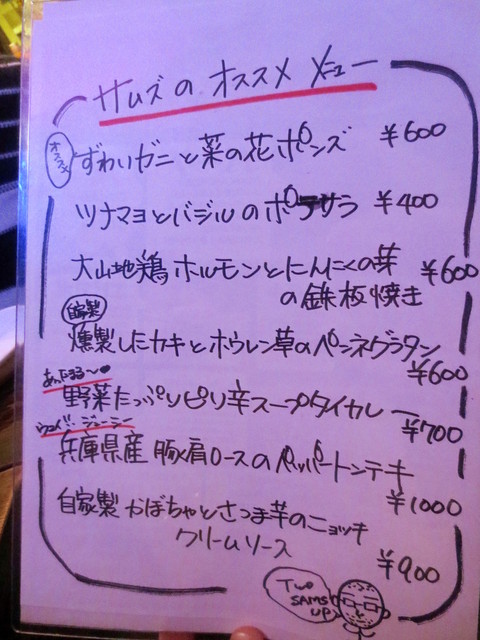 サムズのオススメメニュー
オススメ
ずわいガニと菜の花ポンズ ¥600
ツナマヨとバジルのポテサラ ¥400
大山地鶏ホルモンとにんにくの芽
の鉄板焼き ¥600
自家製
燻製したカキとホウレン草のペンネグラタン
¥600
あったまる〜
野菜たっぷりピリ辛スープタイカレー
¥700
ジューシー
兵庫県産 豚肩ロースのペッパートンテキ
¥1000
自家製かぼちゃとさつま芋のニョッキ
クリームソース
¥900
TWO
SAMS
UP